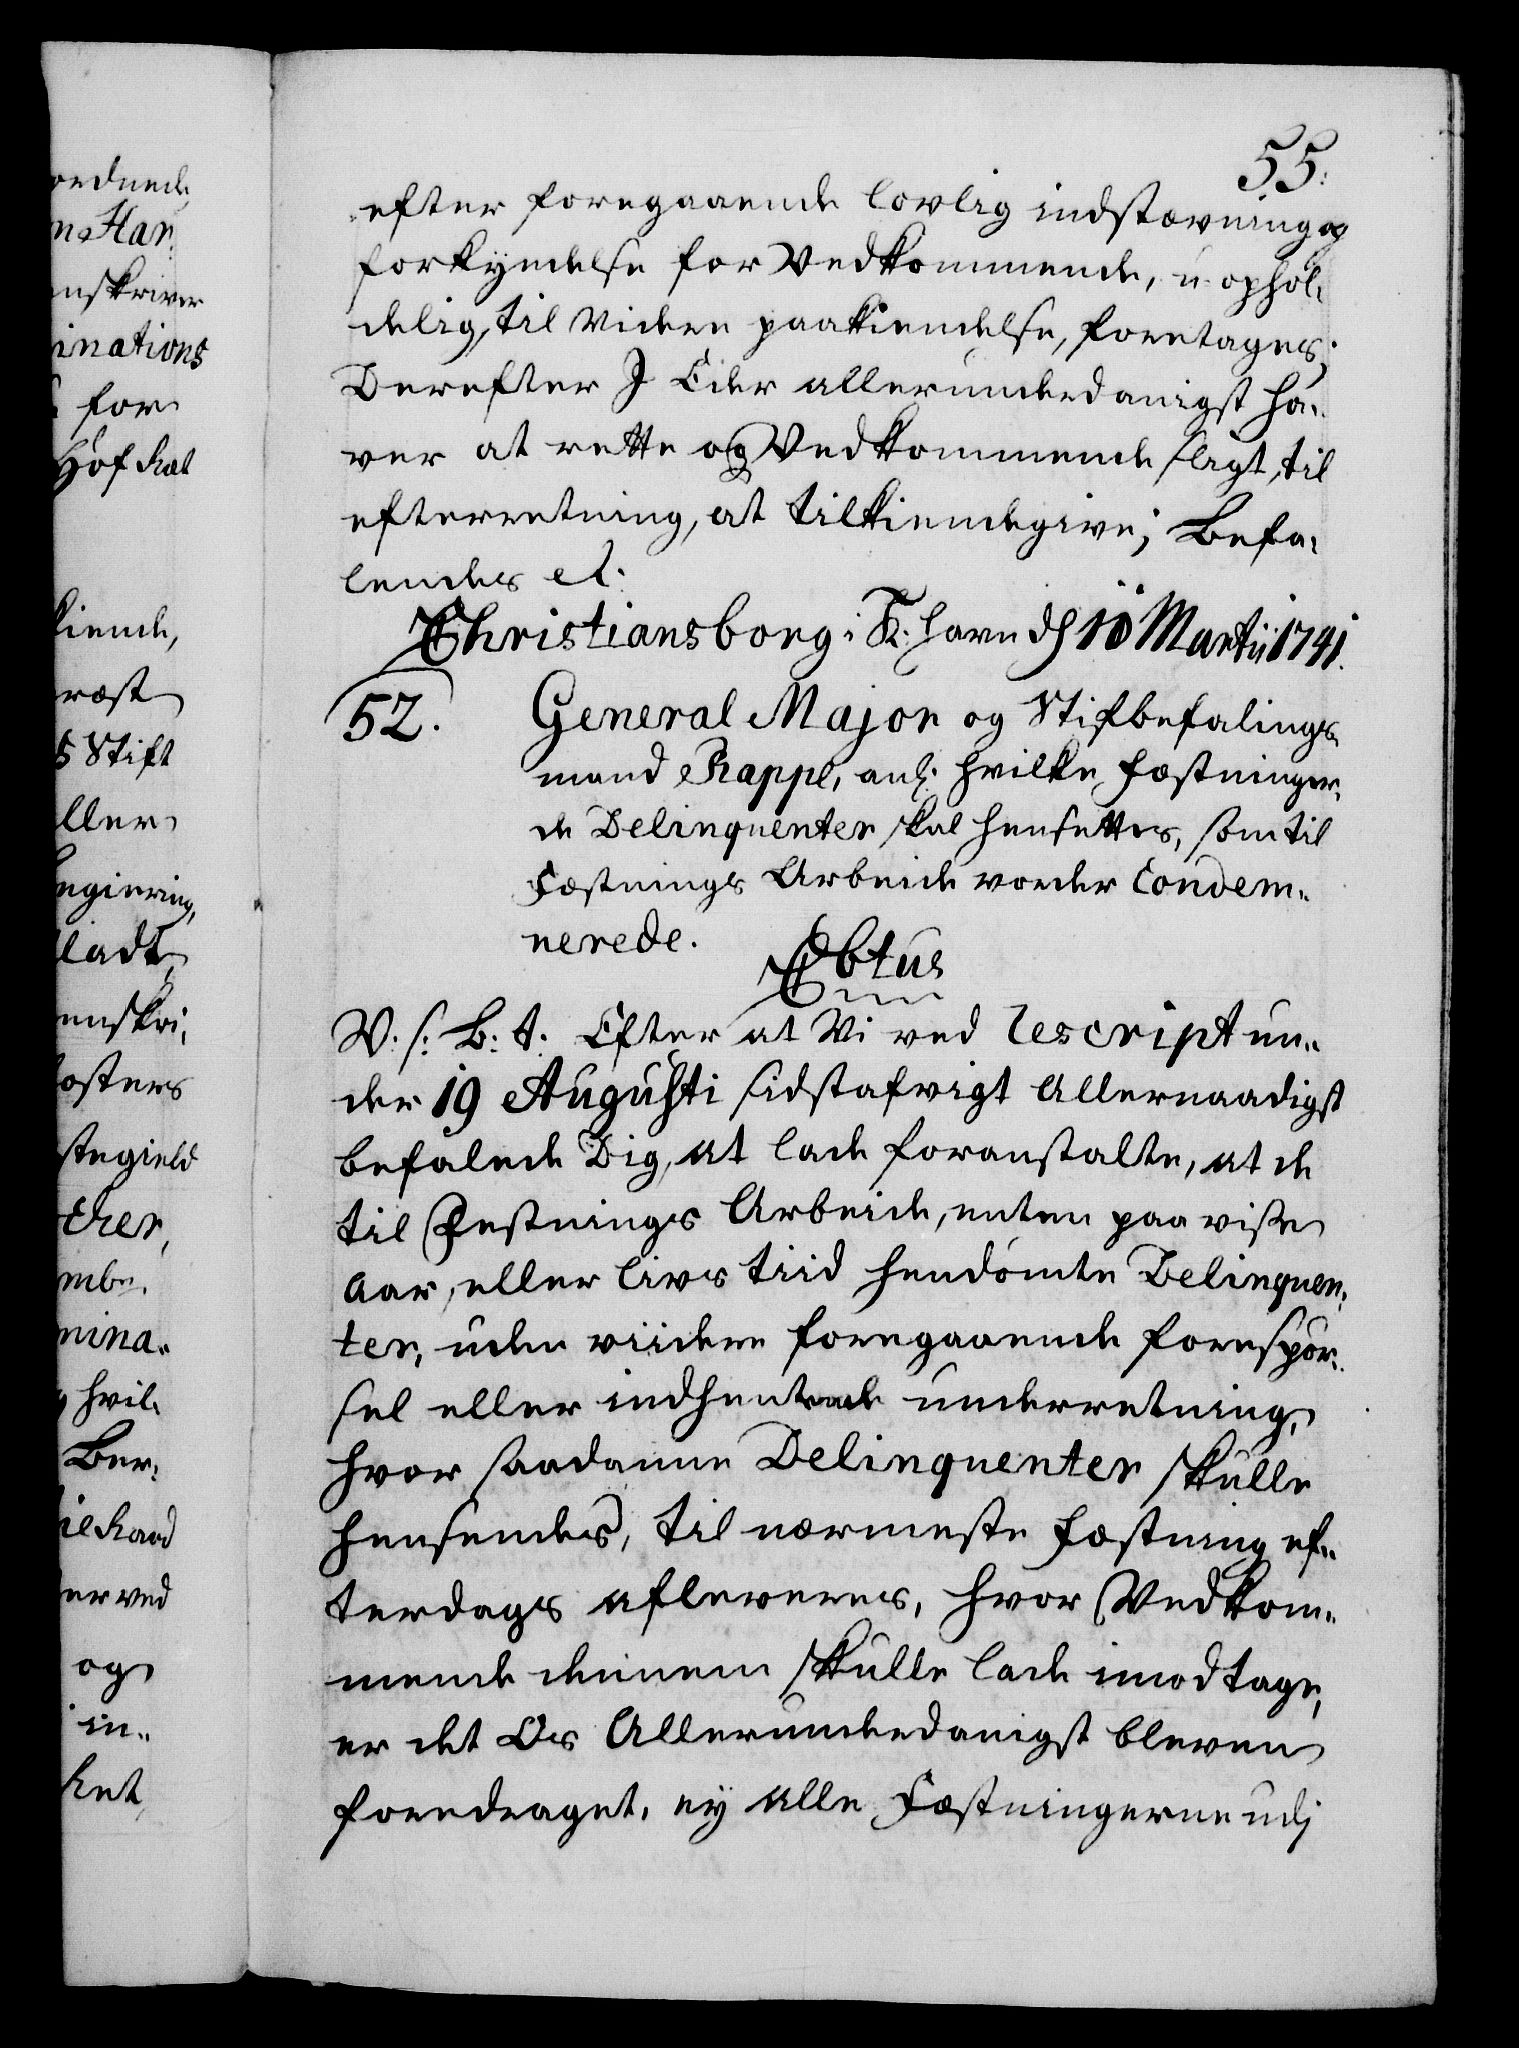 55.
efter foregaaende lovlig indstævning og
forkyndelse for Vedkommende, u-ophol-
delig, til videre paakiendelse, foretages;
Derefter I Eder allerunderdanigst ha-
ver at rette og Vedkommende sligt, til
efterretning, at tilkiendegive; Befa-
lendes etc.
Christiansborg i K: havn dh 10 Martii 1741.
52.
General Major og Stiftbefalings
mand Rappe, anl. hvilke Fæstninger
de Delinquenter skal hensettes, som til
Fæstnings Arbeide vorder Condem-
nerede.
C6tus
V. s: B: t. Efter at Vi ved rescript un-
der 19 Augusti sidstafvigt Allernaadigst
befalede Dig, at lade foranstalte, at de
til Festnings Arbeide, enten paa visse
Aar, eller Livs tiid hendømte Delinquen-
ter, uden viidere foregaaende forespør-
sel eller indhentende underretning,
hvor saadanne Delinquenter skulle
hensendes, til nærmeste Fæstning ef-
terdags afleveres, hvor Vedkom-
mende dennem skulle lade imodtage,
er det Os Allerunderdanigst bleven
foredraget, ey alle Fæstningerne udj
ordnede
Har
nskriver
inations
for
Hof Ræt
kiende,
ræst
Stift
ller
egiering,
ladt
enskri,
osters
stegield
cher,
mbr.
mina-
hvil-
Ber-
er ved
og
in-
ket